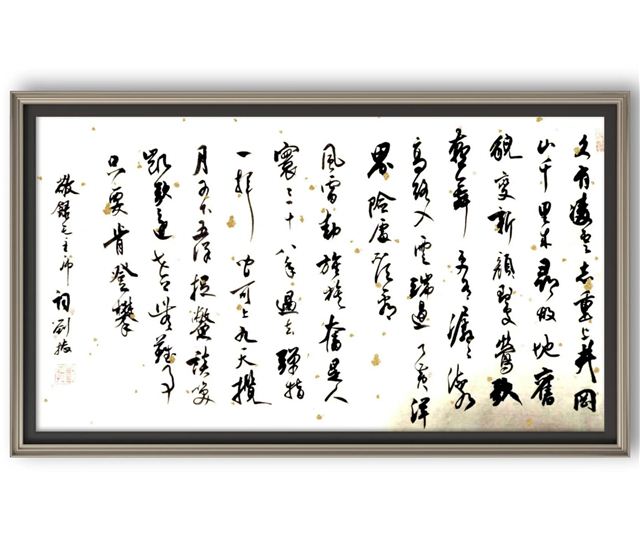 久有凌雲志重上井岡
山千里來尋故地舊
貌變新顏到處鶯歌
燕舞更有潺々流水
高路入雲端過了黃洋
界險處不須看
風雷動旌旗奮是人
寰三十八年過去彈指
一揮間可上九天攬
月可下五洋捉鱉談笑
凱歌還世上無難事
只要肯登攀
敬錄毛主席詞劉振